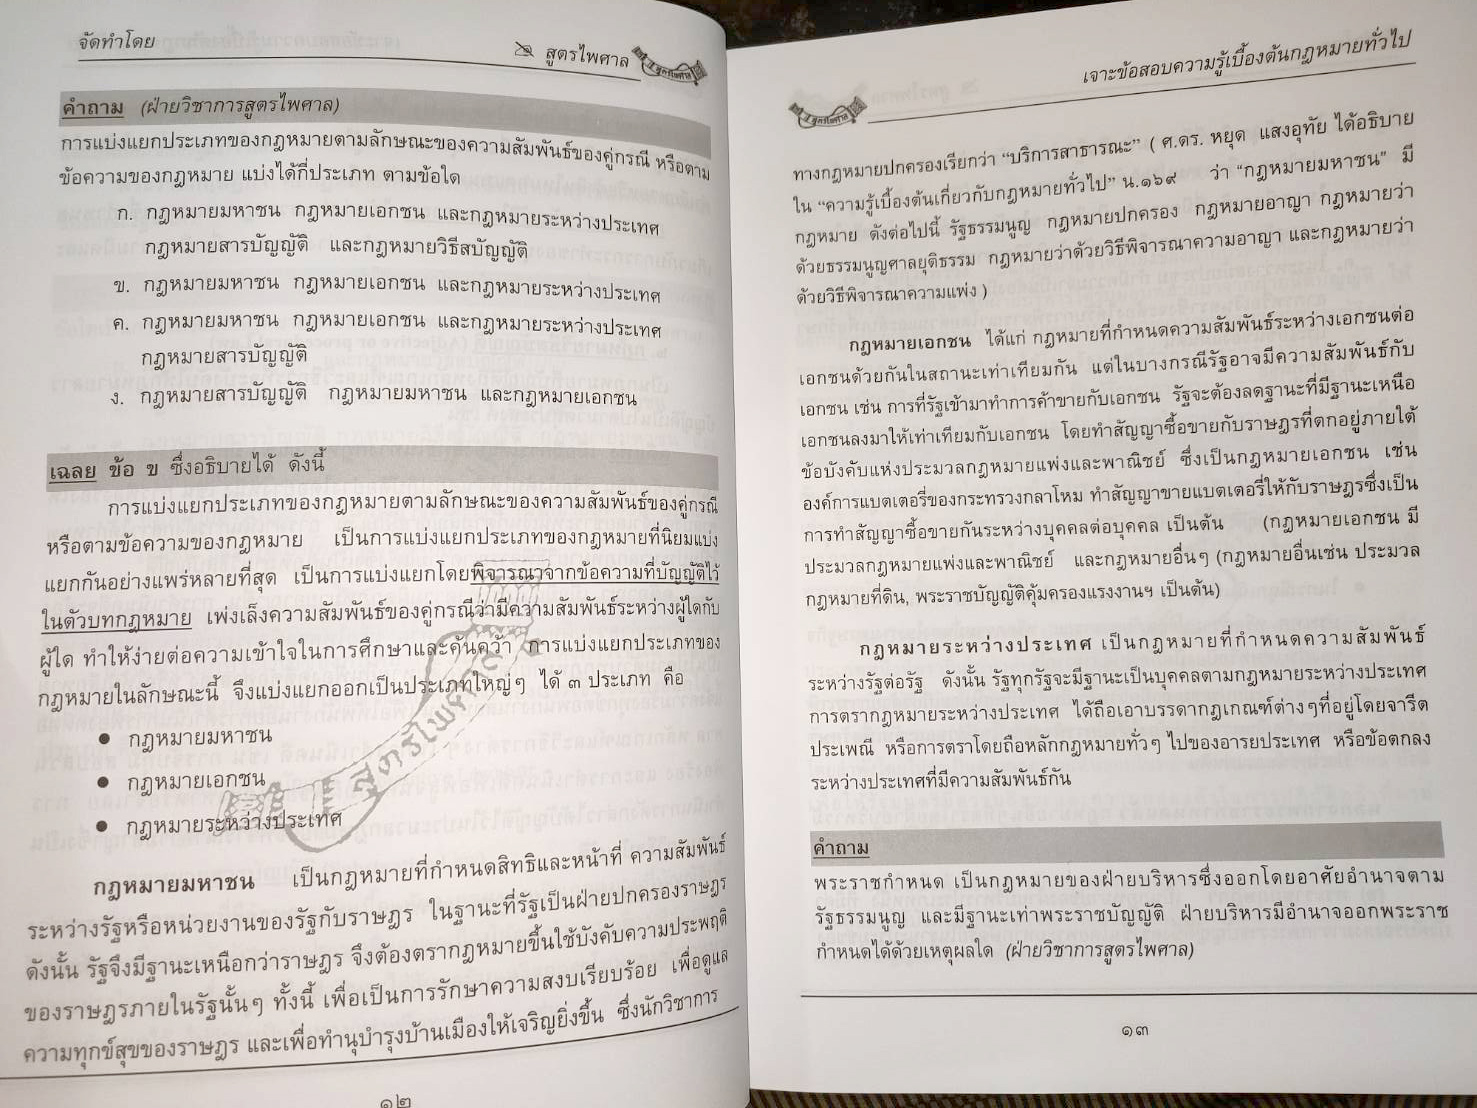 จัดทำโดย
สูตรไพศาล
สูตรไพศาล
คำถาม (ฝ่ายวิชาการสูตรไพศาล)
การแบ่งแยกประเภทของกฎหมายตามลักษณะของความสัมพันธ์ของคู่กรณี หรือตาม
ข้อความของกฎหมาย แบ่งได้กี่ประเภท ตามข้อใด
ก. กฎหมายมหาชน กฎหมายเอกชน และกฎหมายระหว่างประเทศ
กฎหมายสารบัญญัติ และกฎหมายวิธีสบัญญัติ
ข. กฎหมายมหาชน กฎหมายเอกชน และกฎหมายระหว่างประเทศ
ค. กฎหมายมหาชน กฎหมายเอกชน และกฎหมายระหว่างประเทศ
กฎหมายสารบัญญัติ
ง. กฎหมายสารบัญญัติ กฎหมายมหาชน และกฎหมายเอกชน
เฉลย ข้อ ข ซึ่งอธิบายได้ ดังนี้
การแบ่งแยกประเภทของกฎหมายตามลักษณะของความสัมพันธ์ของคู่กรณี
หรือตามข้อความของกฎหมาย เป็นการแบ่งแยกประเภทของกฎหมายที่นิยมแบ่ง
แยกกันอย่างแพร่หลายที่สุด เป็นการแบ่งแยกโดยพิจารณาจากข้อความที่บัญญัติไว้
ในตัวบทกฎหมาย เพ่งเล็งความสัมพันธ์ของคู่กรณีว่ามีความสัมพันธ์ระหว่างผู้ใดกับ
ผู้ใด ทำให้ง่ายต่อความเข้าใจในการศึกษาและค้นคว้า การแบ่งแยกประเภทของ
กฎหมายในลักษณะนี้ จึงแบ่งแยกออกเป็นประเภทใหญ่ๆ ได้ ๓ ประเภท คือ
● กฎหมายมหาชน
● กฎหมายเอกชน
● กฎหมายระหว่างประเทศ
สูตรไพศาล
กฎหมายมหาชน เป็นกฎหมายที่กำหนดสิทธิและหน้าที่ ความสัมพันธ์
ระหว่างรัฐหรือหน่วยงานของรัฐกับราษฎร ในฐานะที่รัฐเป็นฝ่ายปกครองราษฎร
ดังนั้น รัฐจึงมีฐานะเหนือกว่าราษฎร จึงต้องตรากฎหมายขึ้นใช้บังคับความประพฤติ
ของราษฎรภายในรัฐนั้นๆ ทั้งนี้ เพื่อเป็นการรักษาความสงบเรียบร้อย เพื่อดูแล
ความทุกข์สุขของราษฎร และเพื่อทำนุบำรุงบ้านเมืองให้เจริญยิ่งขึ้น ซึ่งนักวิชาการ
๑๒
เจาะข้อสอบความรู้เบื้องต้นกฎหมายทั่วไป
สูตรไพศาล
ทางกฎหมายปกครองเรียกว่า “บริการสาธารณะ” ( ศ.ดร. หยุด แสงอุทัย ได้อธิบาย
ใน “ความรู้เบื้องต้นเกี่ยวกับกฎหมายทั่วไป” น.๑๖๙ ว่า “กฎหมายมหาชน” มี
กฎหมาย ดังต่อไปนี้ รัฐธรรมนูญ กฎหมายปกครอง กฎหมายอาญา กฎหมายว่า
ด้วยธรรมนูญศาลยุติธรรม กฎหมายว่าด้วยวิธีพิจารณาความอาญา และกฎหมายว่า
ด้วยวิธีพิจารณาความแพ่ง )
กฎหมายเอกชน ได้แก่ กฎหมายที่กำหนดความสัมพันธ์ระหว่างเอกชนต่อ
เอกชนด้วยกันในสถานะเท่าเทียมกัน แต่ในบางกรณีรัฐอาจมีความสัมพันธ์กับ
เอกชน เช่น การที่รัฐเข้ามาทำการค้าขายกับเอกชน รัฐจะต้องลดฐานะที่มีฐานะเหนือ
เอกชนลงมาให้เท่าเทียมกับเอกชน โดยทำสัญญาซื้อขายกับราษฎรที่ตกอยู่ภายใต้
ข้อบังคับแห่งประมวลกฎหมายแพ่งและพาณิชย์ ซึ่งเป็นกฎหมายเอกชน เช่น
องค์การแบตเตอรี่ของกระทรวงกลาโหม ทำสัญญาขายแบตเตอรี่ให้กับราษฎรซึ่งเป็น
การทำสัญญาซื้อขายกันระหว่างบุคคลต่อบุคคล เป็นต้น (กฎหมายเอกชน มี
ประมวลกฎหมายแพ่งและพาณิชย์ และกฎหมายอื่นๆ (กฎหมายอื่นเช่น ประมวล
กฎหมายที่ดิน, พระราชบัญญัติคุ้มครองแรงงานฯ เป็นต้น)
กฎหมายระหว่างประเทศ เป็นกฎหมายที่กำหนดความสัมพันธ์
ระหว่างรัฐต่อรัฐ ดังนั้น รัฐทุกรัฐจะมีฐานะเป็นบุคคลตามกฎหมายระหว่างประเทศ
การตรากฎหมายระหว่างประเทศ ได้ถือเอาบรรดากฎเกณฑ์ต่างๆที่อยู่โดยจารีต
ประเพณี หรือการตราโดยถือหลักกฎหมายทั่วๆ ไปของอารยประเทศ หรือข้อตกลง
ระหว่างประเทศที่มีความสัมพันธ์กัน
คำถาม
พระราชกำหนด เป็นกฎหมายของฝ่ายบริหารซึ่งออกโดยอาศัยอำนาจตาม
รัฐธรรมนูญ และมีฐานะเท่าพระราชบัญญัติ ฝ่ายบริหารมีอำนาจออกพระราช
กำหนดได้ด้วยเหตุผลใด (ฝ่ายวิชาการสูตรไพศาล)
๑๓